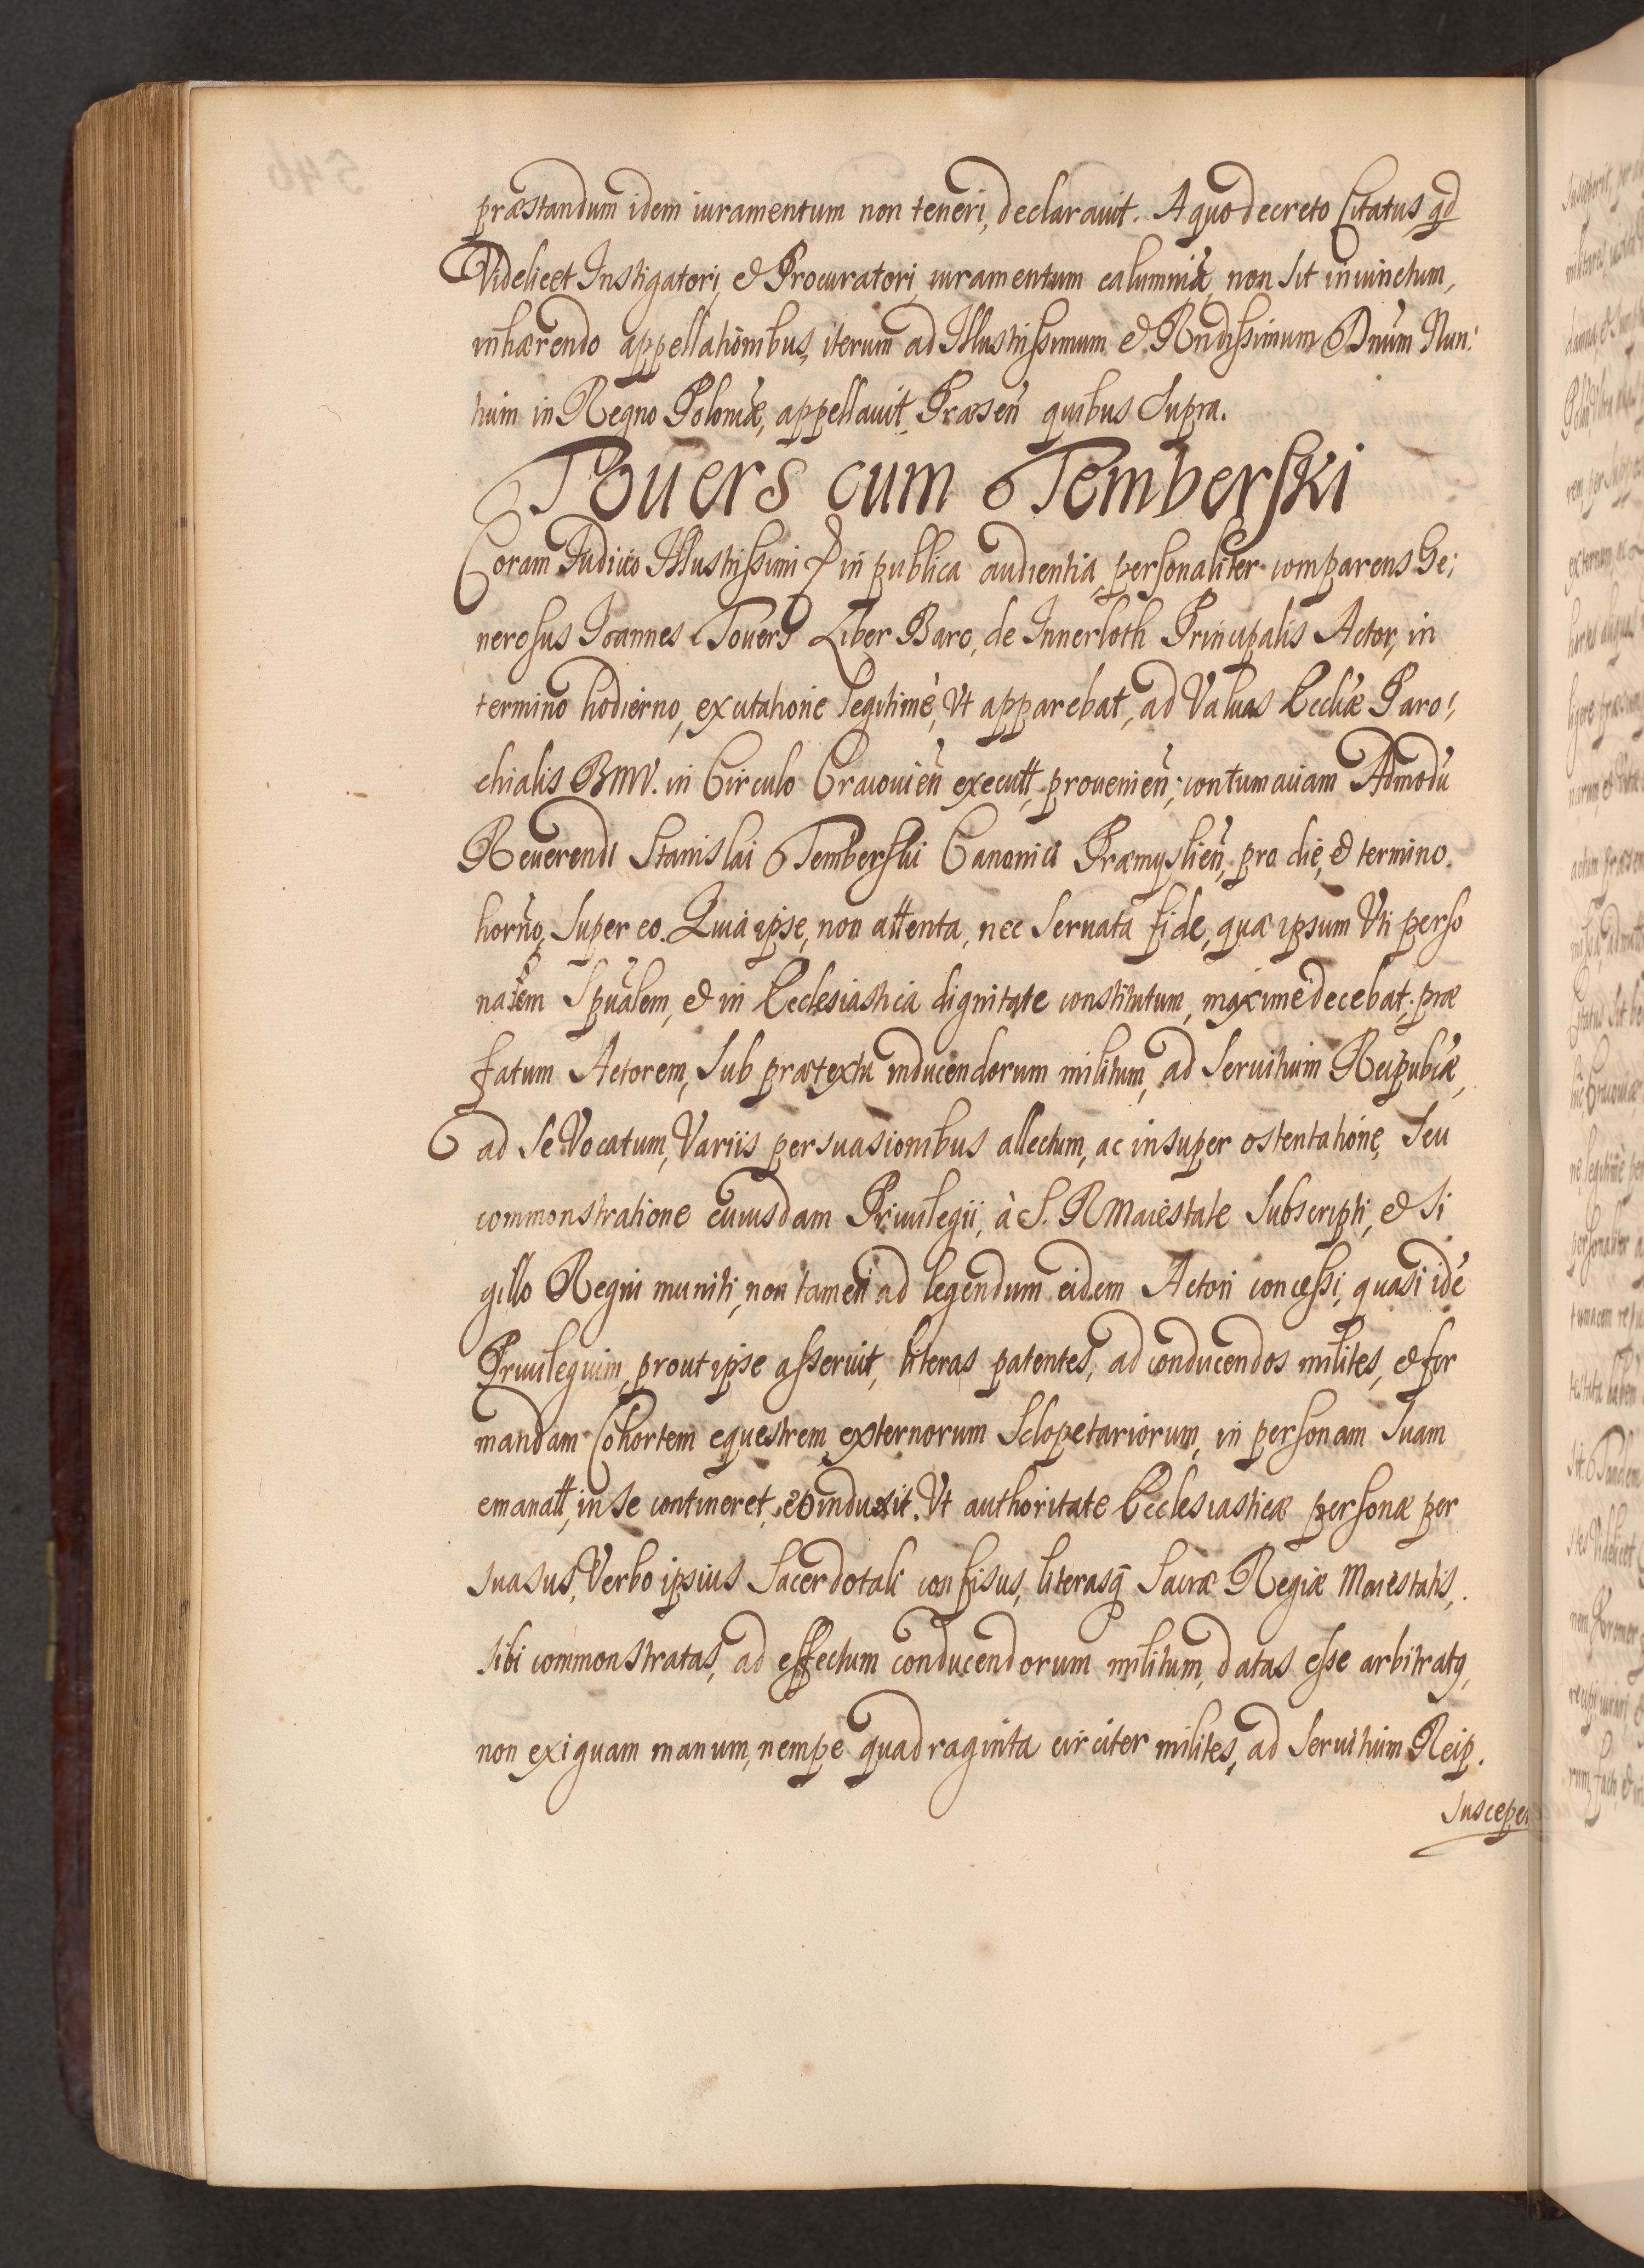 præstandum idem iuramentum non teneri, declarauit. A quo decreto Citatus, qd
Videlicet Instigatori, & Procuratori, iuramentum calumniæ, non sit iniunctum,
inhærendo appellationibus, iterum ad Illustrissimum & Rndissimum Dnum Nun:
tium in Regno Poloniæ, appellauit. Præsen quibus supra.
Touers cum Temberski
Coram Iudicio Illustrissimi & in publica audientia, personaliter comparens Ge:
nerosus Joannes Touers Liber Baro, de Innerloth Principalis Actor, in
termino hodierno, ex citatione legitimè, Vt apparebat, ad Valuas Eccliæ Paro:
chialis BMV. in Circulo Cracouien executt, prouenien; contumaciam Admodu
Reuerendi Stanislai Temberski Canonici Præmyslien, pro die, & termino
horno, super eo. Quia ipse, non attenta, nec seruata fide, quæ ipsum Vti perso
natem Spualem, & in Ecclesiastica dignitate constitutum, maximè decebat; præ
fatum Actorem, sub prætextu inducendorum militum, ad seruitium Reipubcæ,
ad se Vocatum, Variis persuasionibus allectum, ac insuper ostentatione, seu
commonstratione cuiusdam Priuilegii, à S. R Maiestate subscripti, & si
gillo Regni muniti, non tamen ad legendum eidem Actori concessi, quasi idē
Priuilegium, prout ipse asseruit, literas patentes, ad conducendos milites, & for
mandam Cohortem equestrem externorum Sclopetariorum, in personam suam
emanatt, in se contineret, eò induxit. Vt authoritate Ecclesiasticæ personæ per
suasus, Verbo ipsius Sacerdotali confisus, literasq Sacræ Regiæ Maiestatis,
sibi commonstratas, ad effectum conducendorum militum, datas esse arbitratq,
non exiguam manum, nempe quadraginta circiter milites, ad seruitium Reip.